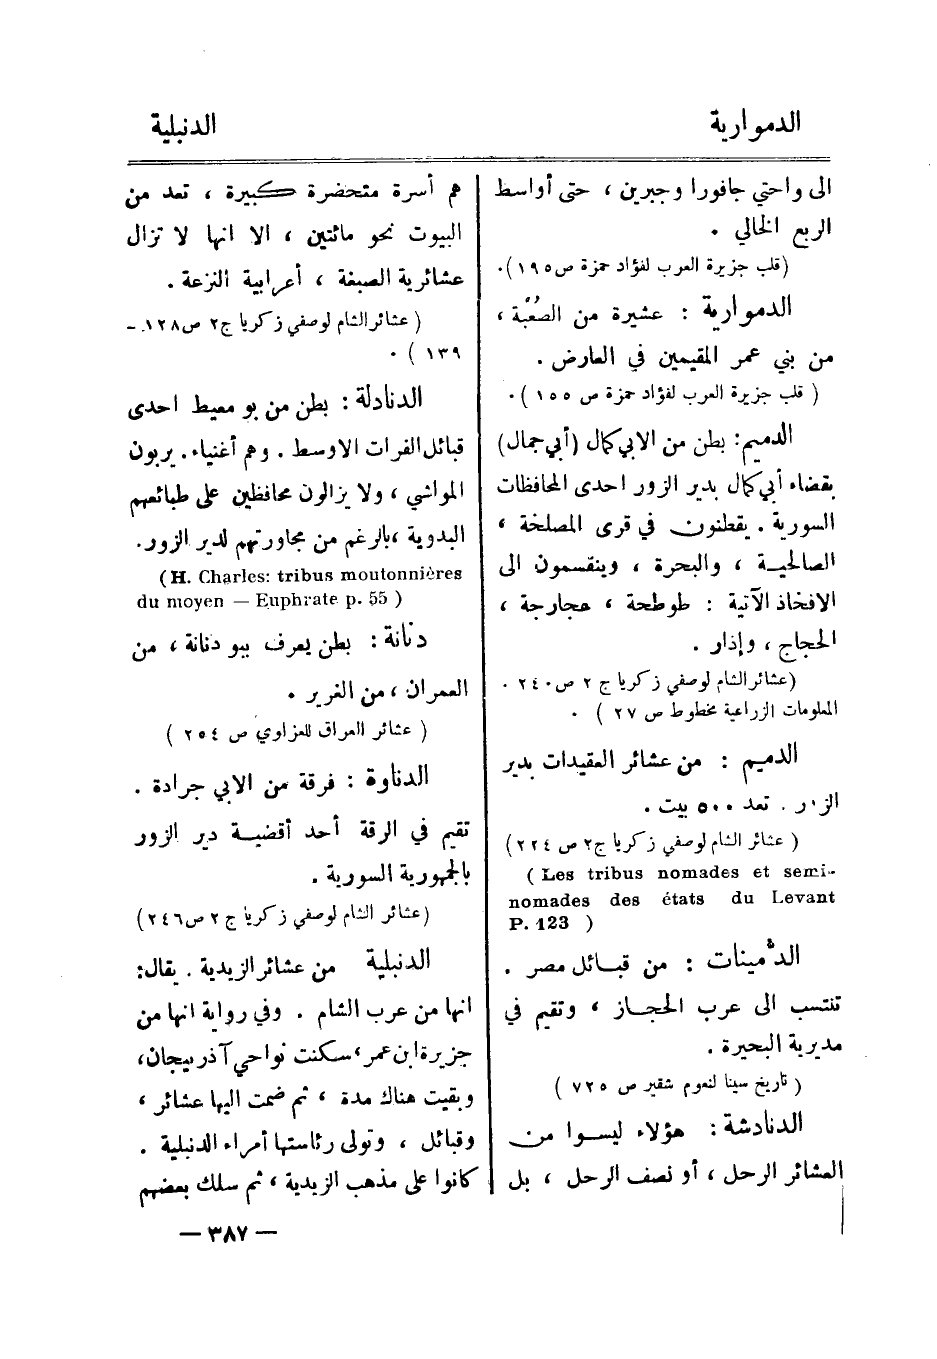 الدموارية
الدنبلية
الى واحتي جافورا وجبرين ، حتى أواسط
الربع الخالي .
(قلب جزيرة العرب لفؤاد حمزة ص١٩٥).
الدموارية : عشيرة من الصُعْبَة ،
من بني عمر المقيمين في العارض .
( قلب جزيرة العرب لفؤاد حمزة ص ١٥٥ ) .
الدميم: بطن من الابي كمال (أبي جمال)
بقضاء أبي كمال بدير الزور احدى المحافظات
السورية . يقطنون في قرى المصلخة ،
الصالحية ، والبحرة ، وينقسمون الى
الافخاذ الآتية : طوطحة ، عجارجة ،
الحجاج ، وإذار .
(عشائر الشام لوصفي زكريا ج ٢ ص ٢٤٠ .
المعلومات الزراعية مخطوط ص ٢٧ ) .
الدميم : من عشائر العقيدات بدير
الزور . تعد ٥٠٠ بيت .
( عشائر الشام لوصفي زكريا ج٢ ص ٢٢٤)
( Les tribus nomades et semi-
nomades des états du Levant
P. 123 )
الدُّمينات : من قبائل مصر .
تنتسب الى عرب الحجاز ، وتقيم في
مديرية البحيرة .
( تاريخ سينا لنعوم شقير ص ٧٢٥ )
الدنادشة : هؤلاء ليسوا من
العشائر الرحل ، أو نصف الرحل ، بل
هم أسرة متحضرة كبيرة ، تعد من
البيوت نحو مائتين ، الا انها لا تزال
عشائرية الصبغة ، أعرابية النزعة .
( عشائر الشام لوصفي زكريا ج٢ ص١٢٨. -
١٣٩ ) .
الدنادلة : بطن من بو معيط احدى
قبائل الفرات الاوسط . وهم أغنياء. يربون
المواشي ، ولا يزالون محافظين على طبائعهم
البدوية ،بالرغم من مجاورتهم لدير الزور.
(H. Charles: tribus moutonnières
du moyen — Euphrate p. 55 )
دنانة : بطن يعرف ببو دنانة ، من
العمران ، من الغرير .
( عشائر العراق للعزاوي ص ٢٥٤ )
الدناوة : فرقة من الابي جرادة .
تقيم في الرقة أحد أقضية دير الزور
بالجمهورية السورية .
(عشائر الشام لوصفي زكريا ج ٢ ص٢٤٦)
الدنبلية من عشائر الزيدية . يقال:
انها من عرب الشام . وفي رواية انها من
جزيرة ابن عمر ، سكنت نواحي آذربيجان،
وبقيت هناك مدة ، ثم ضمت اليها عشائر ،
وقبائل ، وتولى رئاستها أمراء الدنبلية .
كانوا على مذهب الزيدية ، ثم سلك بعضهم
— ٣٨٧ —